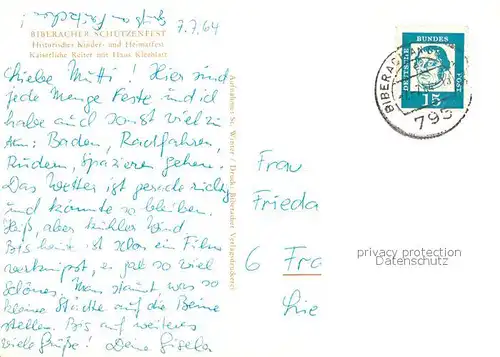 Gruß an Fritzchen! 7.7.64
BIBERACHER SCHÜTZENFEST
Historisches Kinder- und Heimatfest
Kaiserliche Reiter mit Haus Kleeblatt
Liebe Mutti! Hier sind
jede Menge Feste und ich
habe auch sonst viel zu
tun: Baden, Radfahren,
Rudern, Spazieren gehen.
Das Wetter ist gerade richtig
und könnte so bleiben.
Heiß, aber kühler Wind
Bis heute ist schon ein Film
verknipst, es gab so viel
Schönes. Man staunt, was so
kleine Städte auf die Beine
stellen. Bis auf weiteres
viele Grüße! Deine Gisela
Aufnahme: St. Winter / Druck: Biberacher Verlagsdruckerei
DEUTSCHE
BUNDES
POST
15
BIBERACH AN DER
795
Frau
Frieda
6 Fra
Lie
privacy protection
Datenschutz